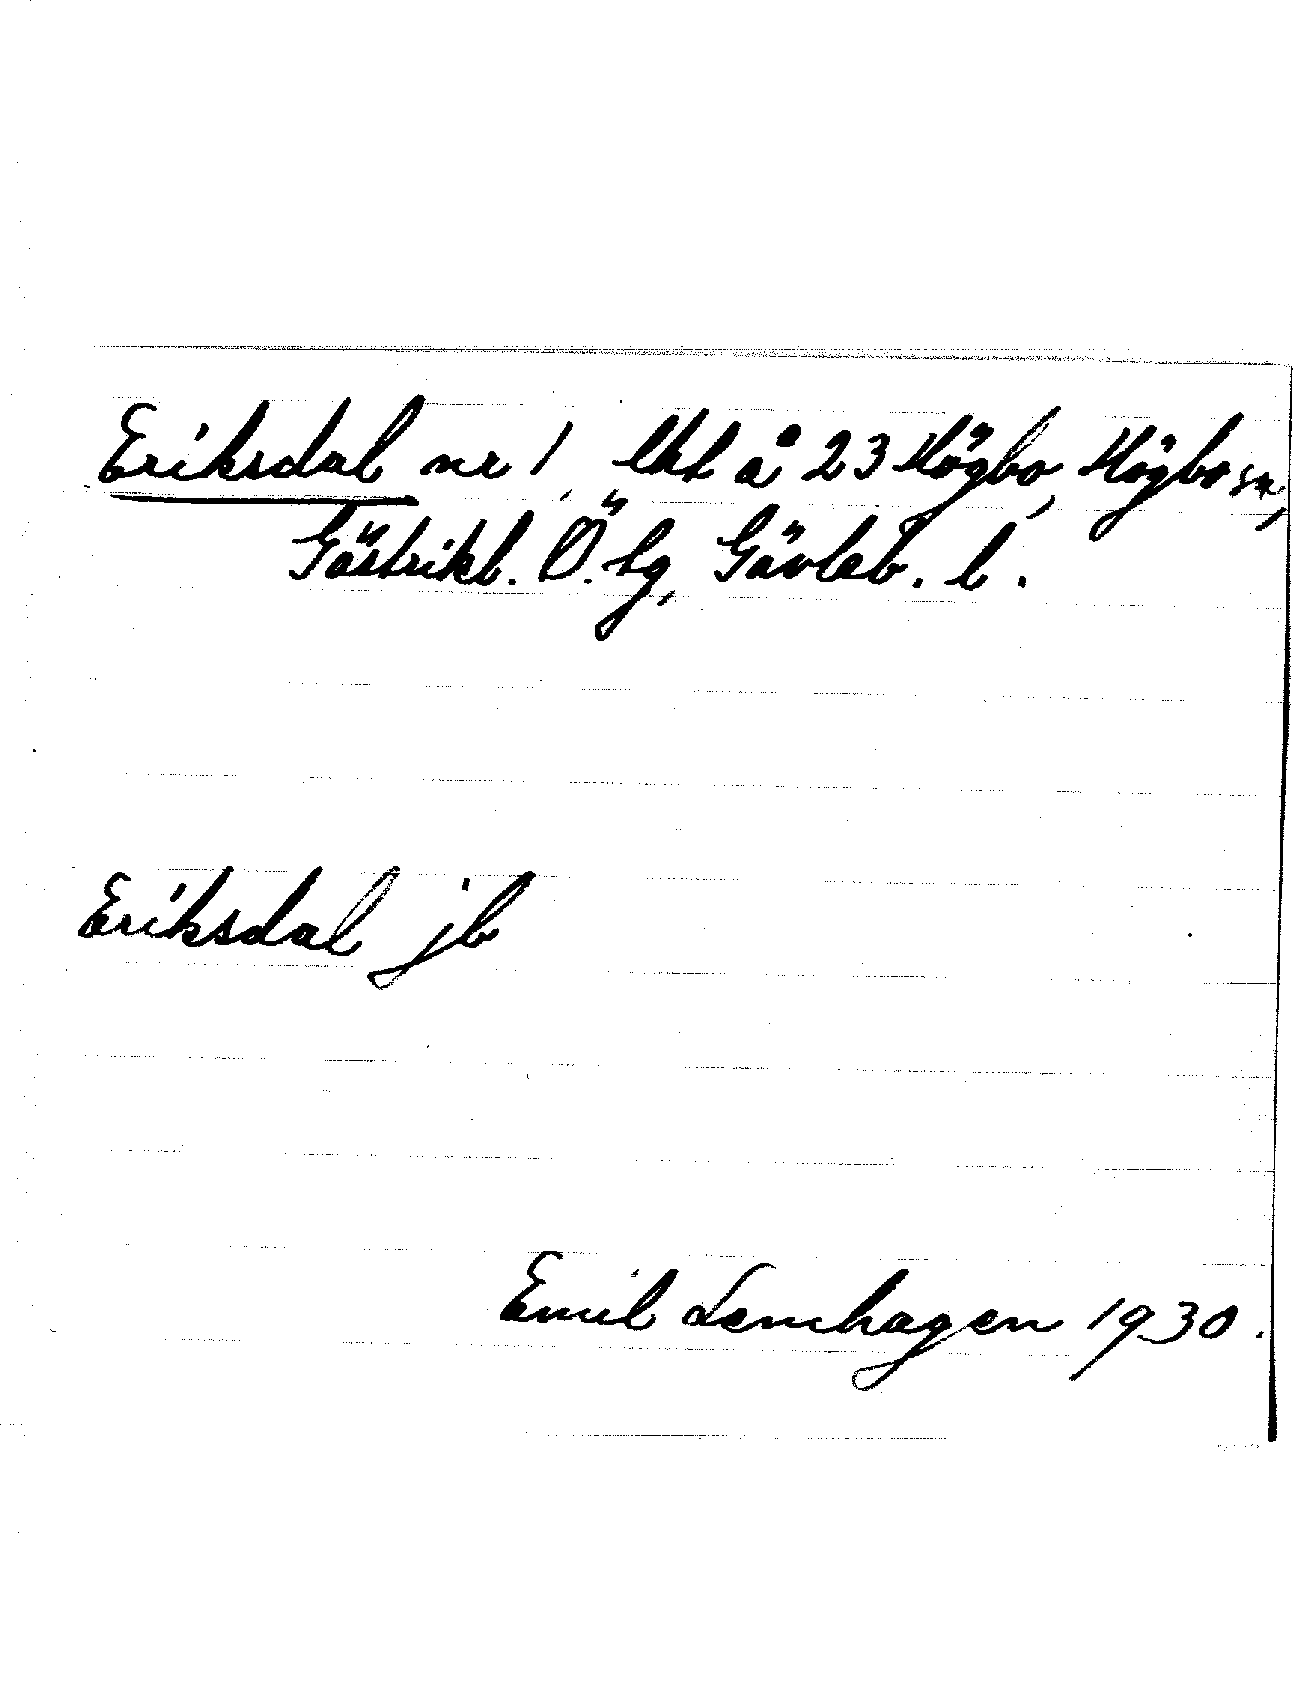 Eriksdal nr 1, lht å 23 Högbo, Högbo sn,
Gästrikl. Ö. tg, Gävleb. l.
Eriksdal jb
Emil Lenhagen 1930.